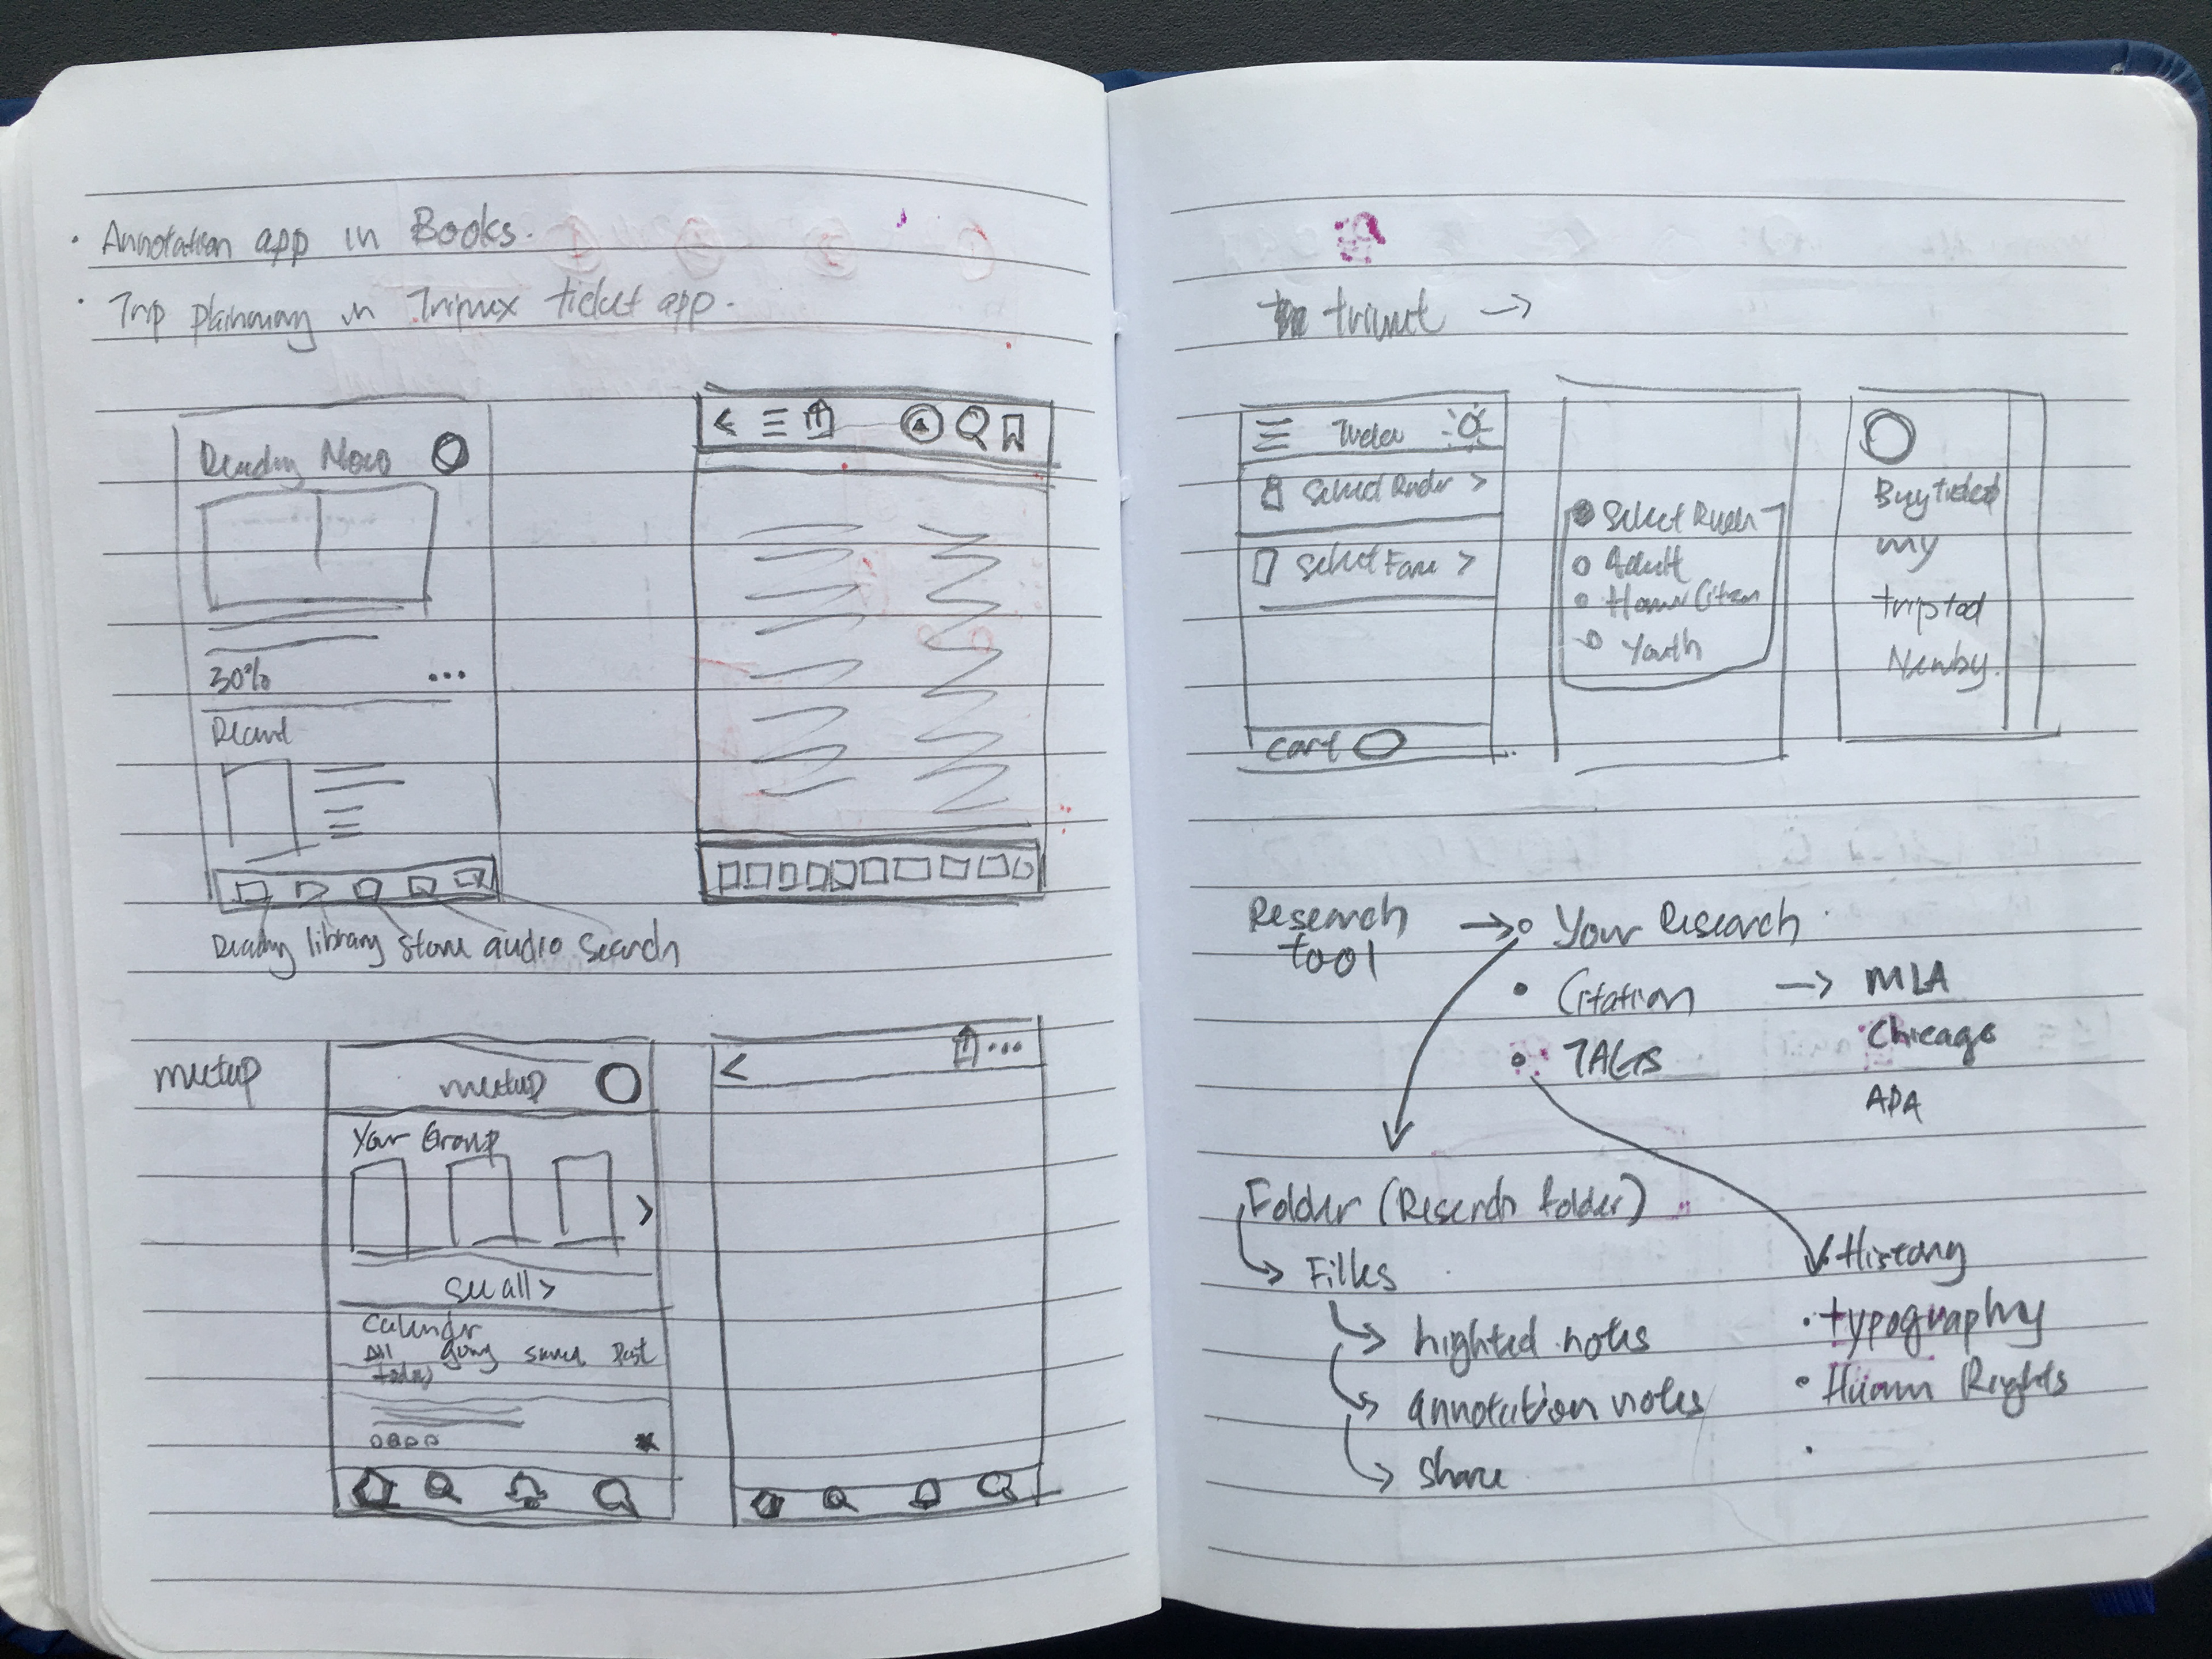 · Annotation app in Books.
· Trip planning in Trimex ticket app.
Reading Now
30%
...
Recent
Reading library store audio search
meetup
meetup
Your Group
See all >
Calender
All going saved Past
today
trimet →
Select Rider >
Select Fare >
Cart
Select Rider
Adult
Youth
Buy ticket
my
Nearby.
Research → Your Research
tool
• Citation → MLA
Chicago
APA
• TAGS
Folder (Research folder)
Filles
highted notes
annotation notes
Share
• History
• typography
• Huam Rights
•